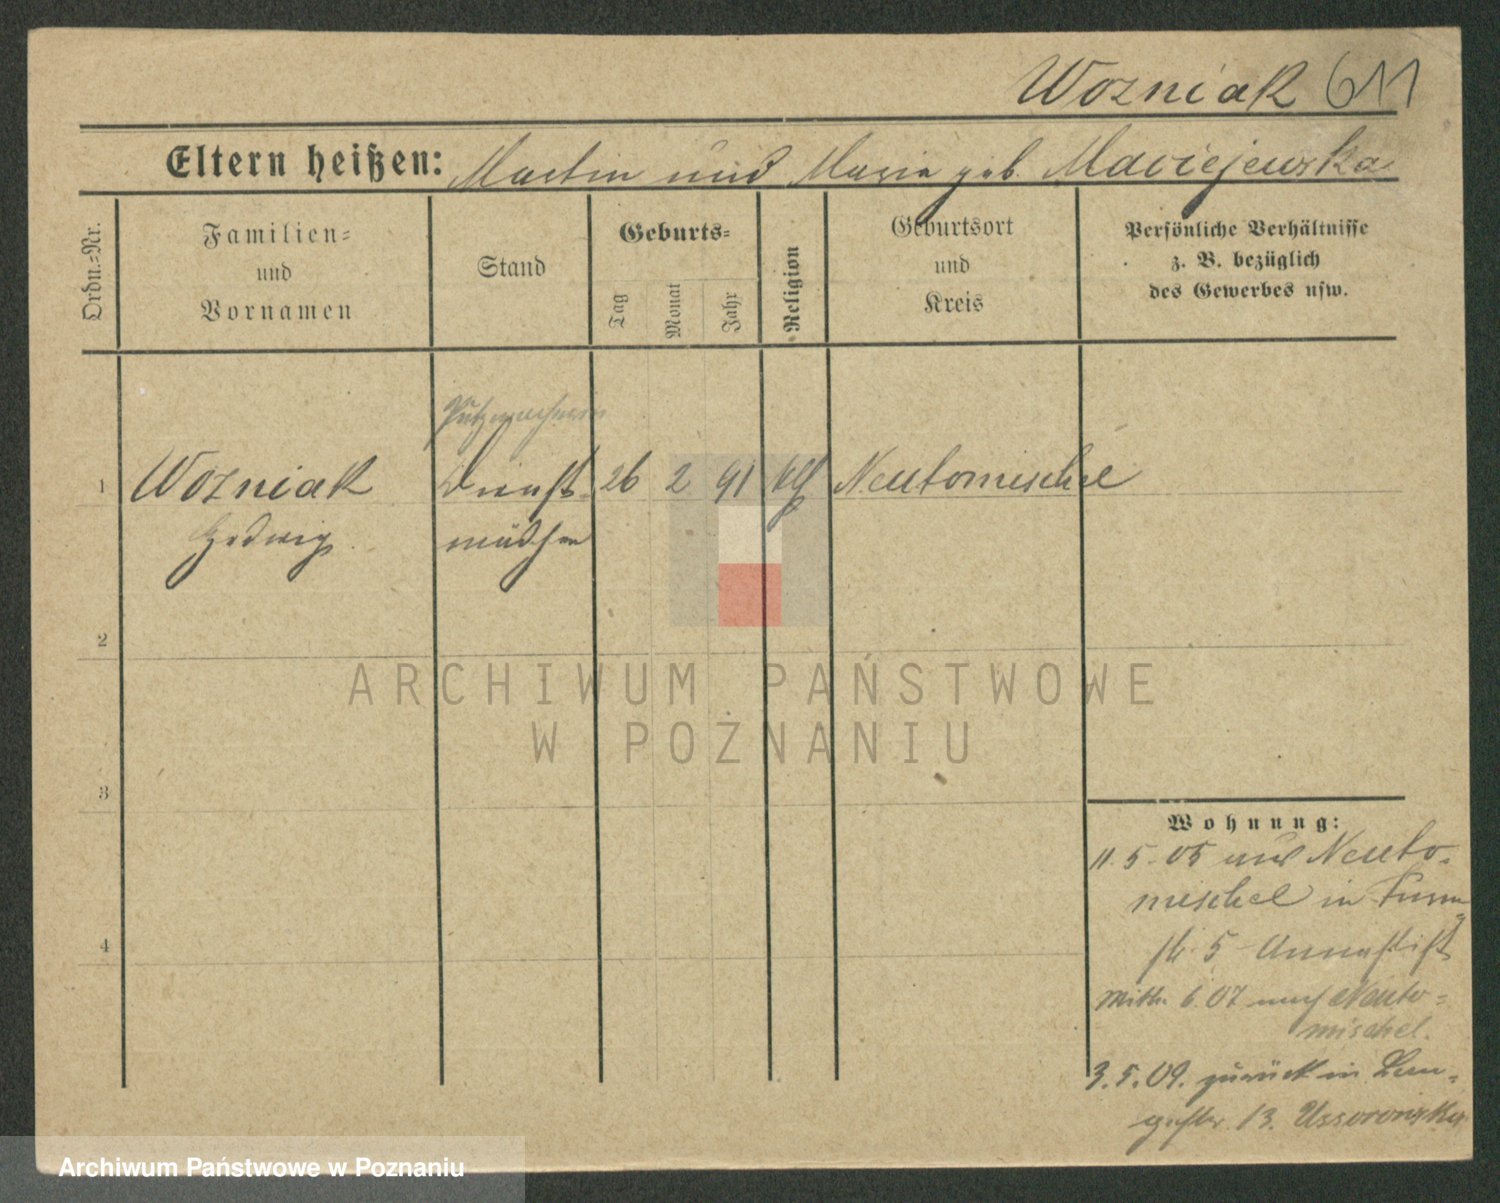 Wozniak 611
Eltern heißen: Martin und Maria geb. Maciejewska
Ordn.-Nr.
Familien-
und
Vornamen
Stand
Geburts-
Tag
Monat
Jahr
Religion
Geburtsort
und
Kreis
Persönliche Verhältnisse
z. B. bezüglich
des Gewerbes usw.
Putzmacherin
1 Wozniak Dienst- 26 2 91 kth Neutomischel
Hedwig mädchen
2
3
4
ARCHIWUM PAŃSTWOWE
W POZNANIU
Wohnung:
11.5.05 aus Neuto-
mischel in
str. 5 Annastift
Mitte 6.07 nach Neuto-
mischel.
3.5.09. zurück in Lan-
gestr. 13.
Archiwum Państwowe w Poznaniu